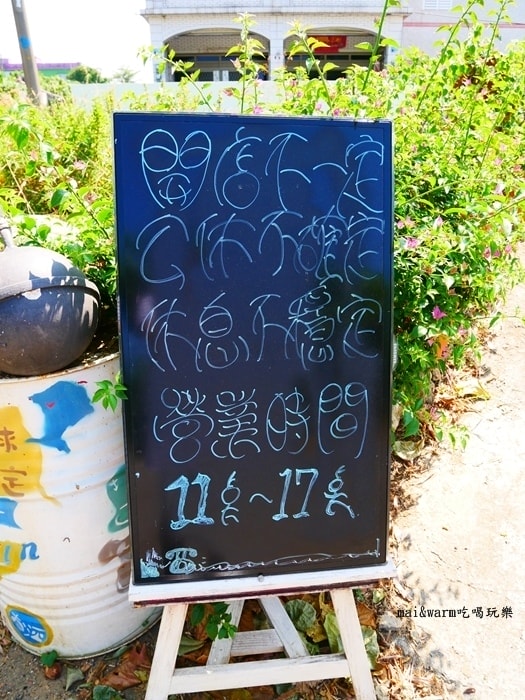 開店不一定
公休不確定
休息不穩定
營業時間
11点~17点
球
定
in
mai&warm吃喝玩樂